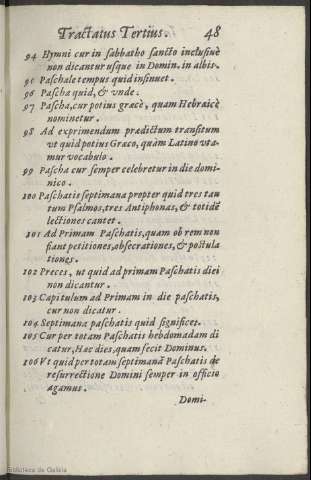 Tractatus Tertius. 48
94 Hymni cur in sabbatho sancto inclusiuè
non dicantur usque in Domin. in albis.
95 Paschale tempus quid insinuet.
96 Pascha quid, & vnde.
97 Pascha, cur potius græcè, quam Hebraicè
nominetur.
98 Ad exprimendum prædictum transitum
vt quid potius Græco, quàm Latino vta-
mur vocabulo.
99 Pascha cur semper celebretur in die domi-
nico.
100 Paschatis septimana propter quid tres tan
tum Psalmos, tres Antiphonas, & totidē
lectiones cantet.
101 Ad Primam Paschatis, quam ob rem non
fiant petitiones, obsecrationes, & postula
tiones.
102 Preces, ut quid ad primam Paschatis diei
non dicantur.
103 Capitulum ad Primam in die paschatis,
cur non dicatur.
104 Septimana paschatis quid significet.
105 Cur per totam Paschatis hebdomadam di
catur, Hæc dies, quam fecit Dominus.
106 Vt quid per totam septimanā Paschatis de
resurrectione Domini semper in officio
agamus.
Domi-
Biblioteca de Galicia